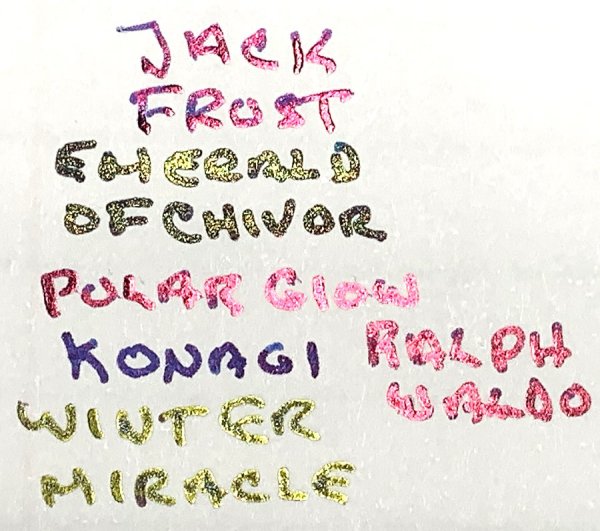 JACK
FROST
EMERALD
OF CHIVOR
POLAR GLOW
KONAGI
RALPH
WALDO
WINTER
MIRACLE